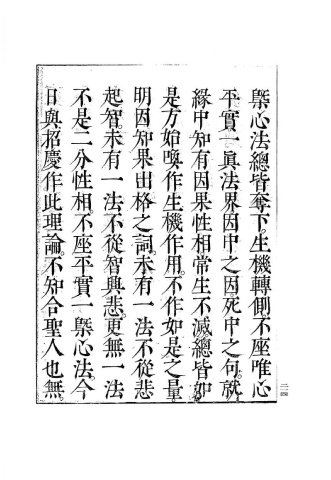 槩心法總皆奪下生機轉側不座唯心
平實一眞法界因中之因死中之句就
緣中知有因果性相常生不滅總皆如
是方始喚作生機作用不作如是之量
明因知果出格之詞未有一法不從悲
起智未有一法不從智與悲更無一法
不是二分性相不座平實一槩心法今
日與招慶作此理論不知合聖人也無
二四